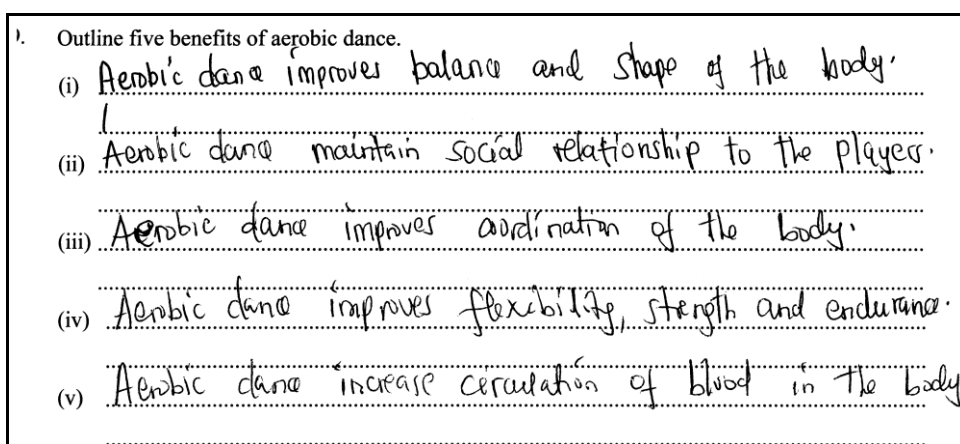 ). Outline five benefits of aerobic dance.
(i) Aerobic dance improves balance and shape of the body.
(ii) Aerobic dance maintain social relationship to the players.
(iii) Aerobic dance improves coordination of the body.
(iv) Aerobic dance improves flexibility, strength and endurance.
(v) Aerobic dance increase circulation of blood in the body